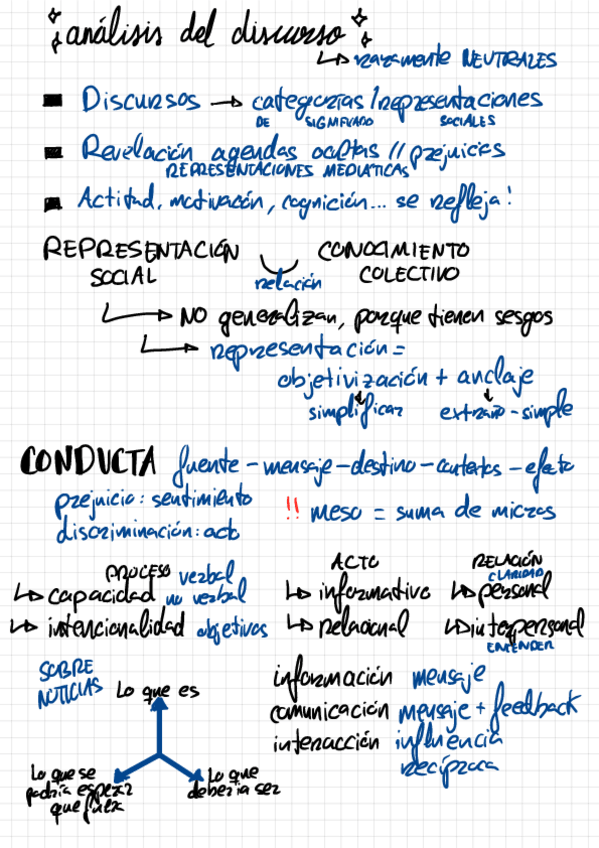 análisis del discurso
↳ raramente NEUTRALES
■ Discursos → categorías/representaciones
DE SIGNIFICADO SOCIALES
■ Revelación agendas ocultas // prejuicios
REPRESENTACIONES MEDIÁTICAS
■ Actitud, motivación, cognición... se refleja!
REPRESENTACIÓN SOCIAL
relación
CONOCIMIENTO COLECTIVO
↳ NO generalizan, porque tienen sesgos
↳ representación =
objetivización + anclaje
simplificar extraño - simple
CONDUCTA fuente - mensaje - destino - contextos - efecto
prejuicio: sentimiento
discriminación: acto
!! meso = suma de micros
PROCESO
↳ capacidad verbal no verbal
↳ intencionalidad objetivos
ACTO
↳ informativo
↳ relacional
RELACIÓN
CLARIDAD
↳ personal
↳ interpersonal
ENTENDER
SOBRE NOTICIAS
Lo que es
Lo que se
podría esperar
que fuera
Lo que
debería ser
información mensaje
comunicación mensaje + feedback
interacción influencia
recíproca